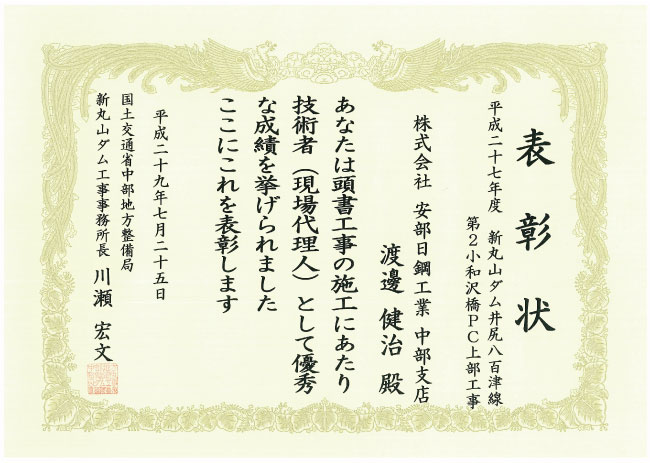 表彰状
平成二十七年度 新丸山ダム井尻八百津線
第2小和沢橋PC上部工事
株式会社 安部日鋼工業 中部支店
渡邊 健治 殿
あなたは頭書工事の施工にあたり
技術者(現場代理人)として優秀
な成績を挙げられました
ここにこれを表彰します
平成二十九年七月二十五日
国土交通省中部地方整備局
新丸山ダム工事事務所長 川瀬 宏文